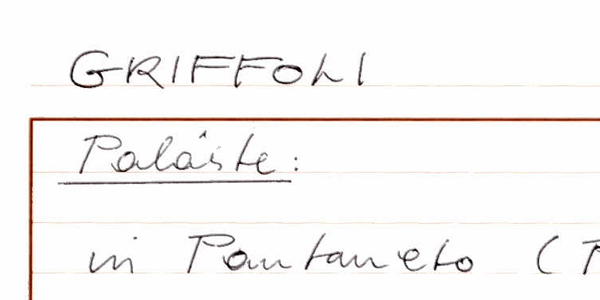 GRIFFOLI
Paläste:
in Pantaneto (P